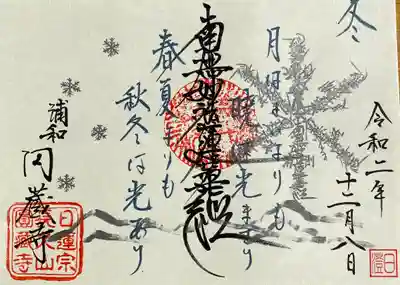 冬
令和二年
十二月八日
月は宵よりも
暁は光まさり
南無妙法蓮華経
春夏よりも
秋冬は光あり
浦和
円蔵寺
日蓮宗